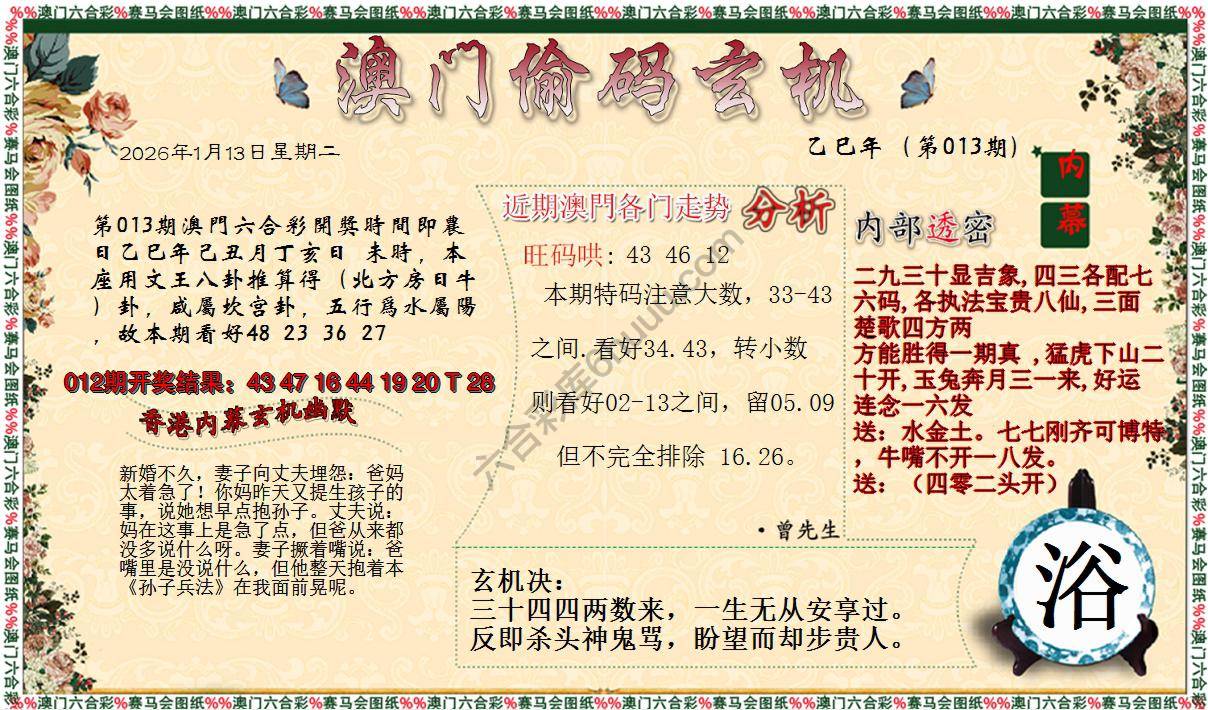 %%澳门六合彩%赛马会图纸%%澳门六合彩%赛马会图纸%%澳门六合彩%赛马会图纸%%澳门六合彩%赛马会图纸%%澳门六合彩%赛马会图纸%%澳门六合彩%赛马会图纸%%
澳门偷码玄机
2026年1月13日星期二
乙巳年（第013期）
内
幕
第013期澳門六合彩開獎時間即農
日乙巳年己丑月丁亥日 未時，本
座用文王八卦推算得（北方房日牛
）卦，咸屬坎宫卦，五行爲水屬陽
，故本期看好48 23 36 27
012期开奖结果：43 47 16 44 19 20 T 28
香港内幕玄机幽默
新婚不久，妻子向丈夫埋怨：爸妈
太着急了！你妈昨天又提生孩子的
事，说她想早点抱孙子。丈夫说：
妈在这事上是急了点，但爸从来都
没多说什么呀。妻子撅着嘴说：爸
嘴里是没说什么，但他整天抱着本
《孙子兵法》在我面前晃呢。
近期澳門各门走势 分析
旺码哄: 43 46 12
本期特码注意大数，33-43
之间.看好34.43，转小数
则看好02-13之间，留05.09
但不完全排除 16.26。
·曾先生
内部透密
二九三十显吉象,四三各配七
六码,各执法宝贵八仙,三面
楚歌四方两
方能胜得一期真 ,猛虎下山二
十开,玉兔奔月三一来,好运
连念一六发
送：水金土。七七刚齐可博特
，牛嘴不开一八发。
送：（四零二头开）
玄机决：
三十四四两数来，一生无从安享过。
反即杀头神鬼骂，盼望而却步贵人。
浴